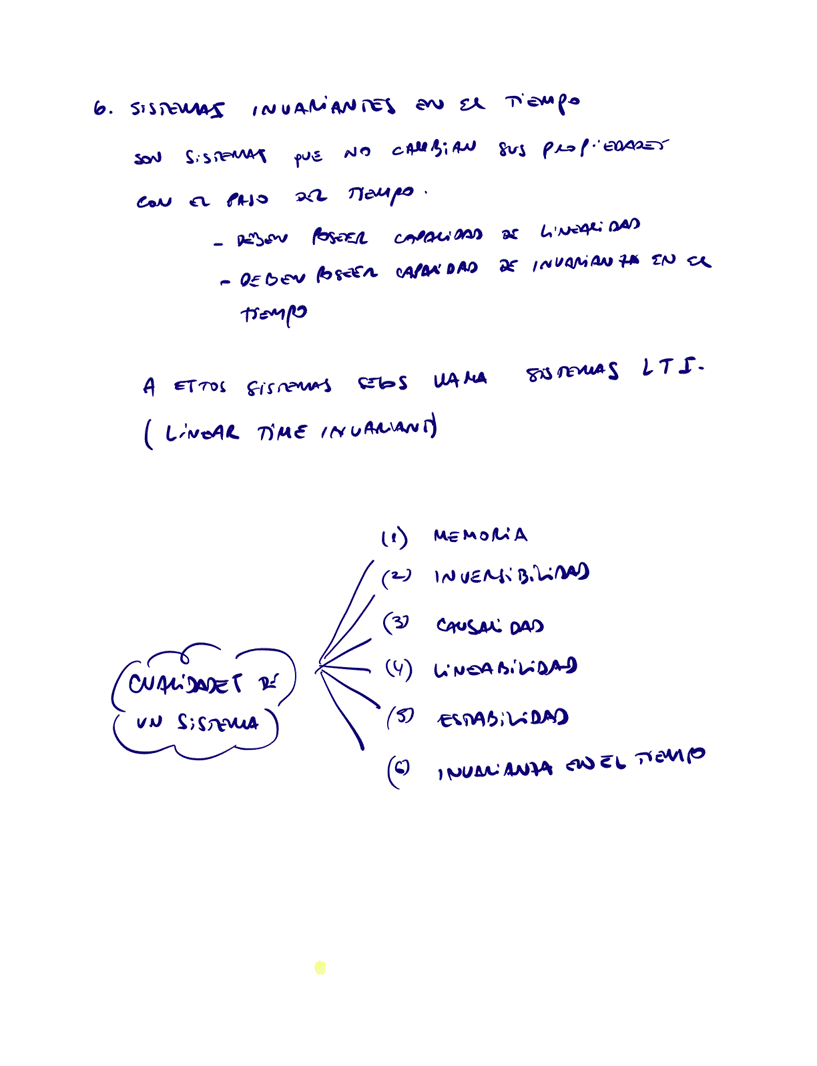 6. SISTEMAS INVARIANTES EN EL TIEMPO
SON SISTEMAS QUE NO CAMBIAN SUS PROPIEDADES
CON EL PASO DEL TIEMPO.
- DEBEN POSEER CAPACIDAD DE LINEALIDAD
- DEBEN POSEER CAPACIDAD DE INVARIANZA EN EL
TIEMPO
A ESTOS SISTEMAS SE LOS LLAMA SISTEMAS LTI.
(LINEAR TIME INVARIANT)
(1) MEMORIA
(2) INVERSIBILIDAD
(3) CAUSALIDAD
(4) LINEABILIDAD
(5) ESTABILIDAD
(6) INVARIANZA EN EL TIEMPO
CUALIDADES DE
UN SISTEMA